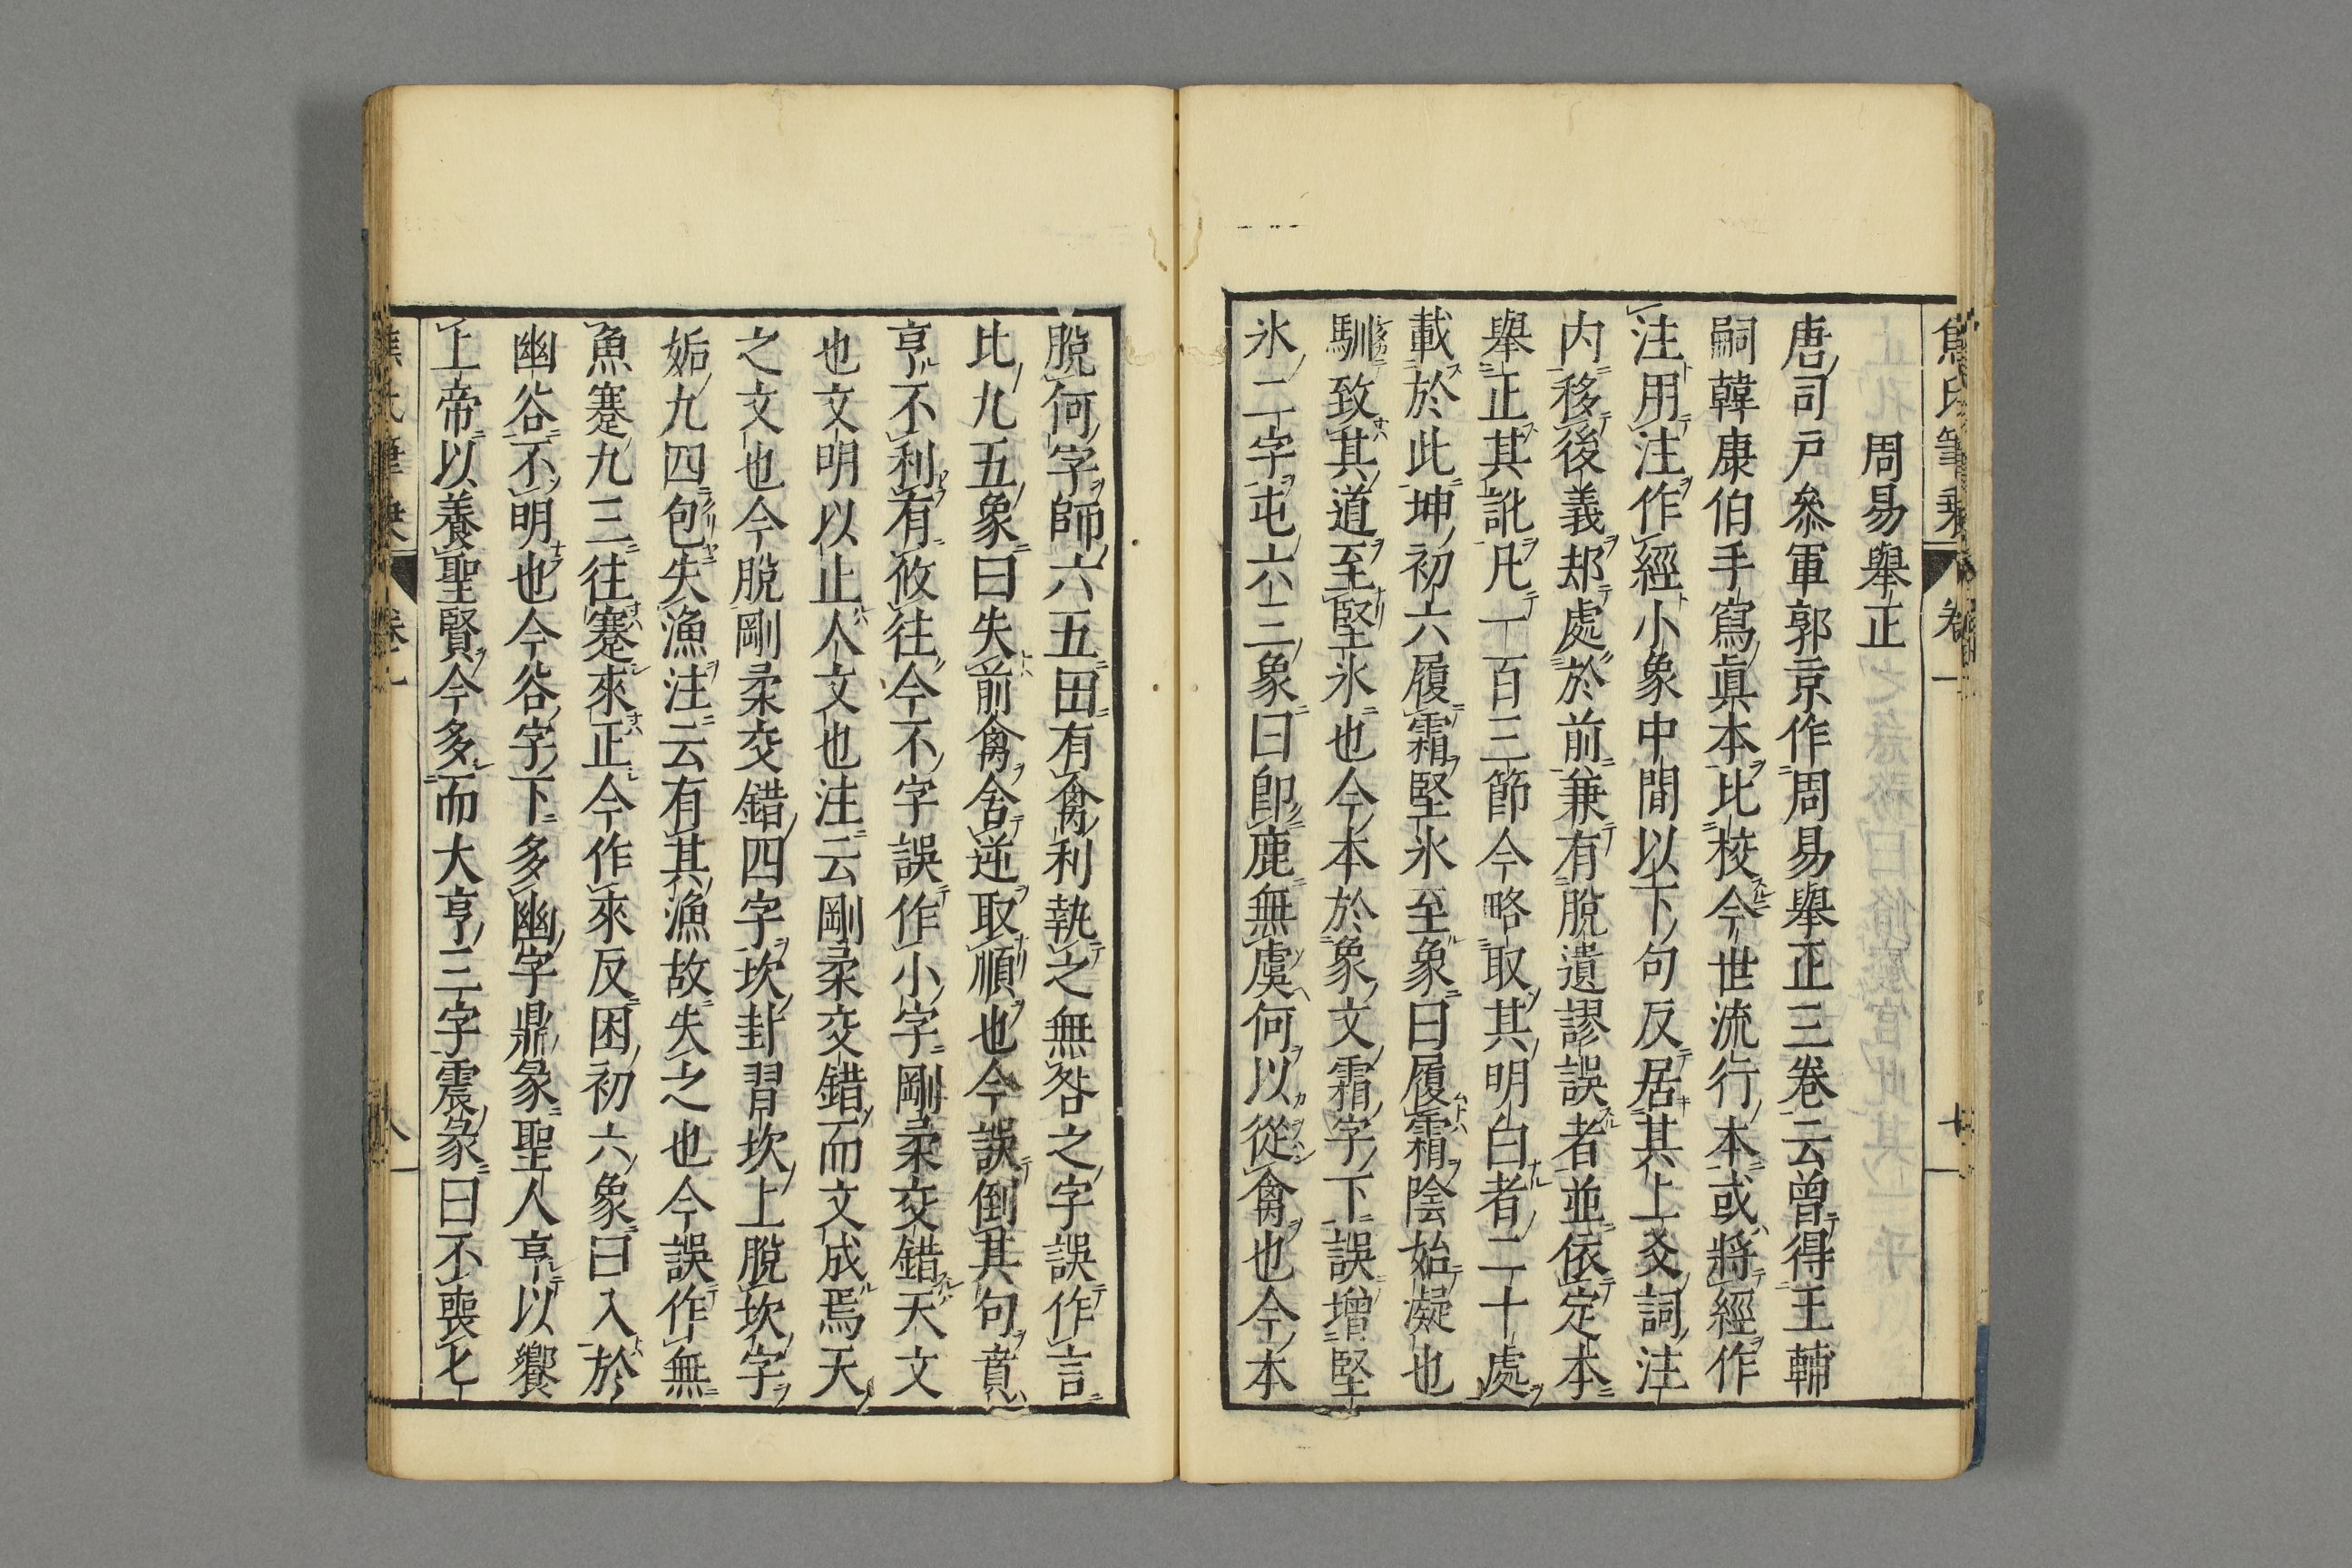 焦氏筆乗 卷一 七
周易舉正
唐司戸叅軍郭京作周易舉正三卷云曾得王輔
嗣韓康伯手寫眞本比校今世流行本或將經作
注用注作經小象中間以下句反居其上爻詞注
内移後義却處於前兼有脫遺謬誤者並依定本
舉正其訛凡一百三節今略取其明白者二十處
載於此坤初六履霜堅氷至象曰履霜陰始凝也
馴致其道至堅氷也今本於象文霜字下誤增堅
氷二字屯六三象曰卽鹿無虞何以從禽也今本
脫何字師六五田有禽利執之無咎之字誤作言
比九五象曰失前禽舍逆取順也今誤倒其句賁
亨不利有攸往今不字誤作小字剛柔交錯天文
也文明以止人文也注云剛柔交錯而文成焉天
之文也今脫剛柔交錯四字坎卦習坎上脫坎字
姤九四包失漁注云有其漁故失之也今誤作無
魚蹇九三往蹇來正今作來反困初六象曰入於
幽谷不明也今谷字下多幽字鼎彖聖人亨以饗
上帝以養聖賢今多而大亨三字震彖曰不喪匕
焦氏筆乗 卷一 八